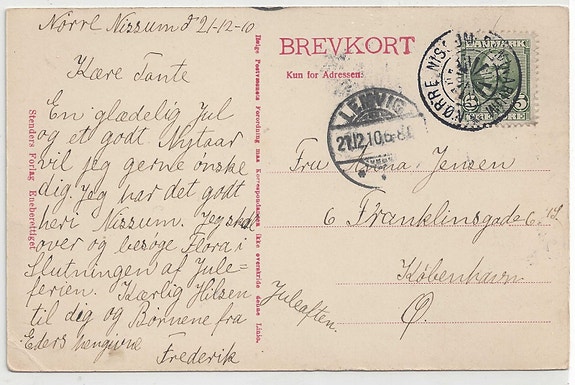 Nörre Nissum d 21-12-10
Kære Tante
En glædelig Jul
og et godt Nytaar
vil jeg gerne ønske
dig. Jeg har det godt
heri Nissum. Jeg skal
over og besøge Flora i
Slutningen af Jule=
ferien. Kærlig Hilsen
til dig og Børnene fra
Eders hengivne
Frederik
Juleaften.
Stenders Forlag Eneberettiget
Ifølge Postvæsenets Forordning maa Korrespondancen ikke overskride denne Linie.
BREVKORT
Kun for Adressen.
LEMVIG
21.12.10.6-8E
NØRRE NISSUM
DANMARK
5 5
Fru Jensen
6 Franklinsgade 6.
København
Ø.